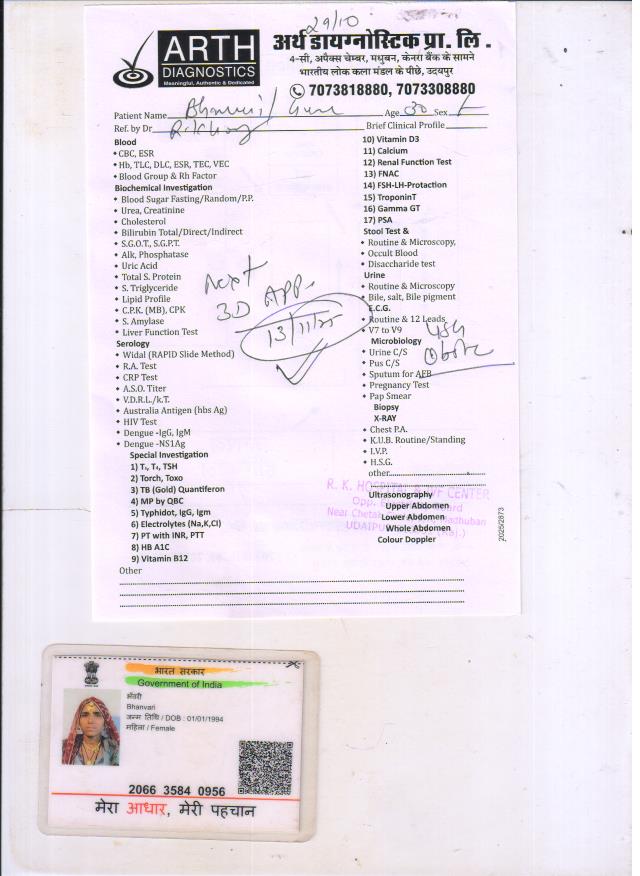 29/10
ARTH
DIAGNOSTICS
Meaningful, Authentic & Dedicated
अर्थ डायग्नोस्टिक प्रा. लि .
4-सी, अपैक्स चेम्बर, मधुबन, केनरा बैंक के सामने
भारतीय लोक कला मंडल के पीछे, उदयपुर
7073818880, 7073308880
Patient Name Age 30 Sex F
Ref. by Dr. Brief Clinical Profile
Blood
CBC, ESR
Hb, TLC, DLC, ESR, TEC, VEC
Blood Group & Rh Factor
Biochemical Investigation
Blood Sugar Fasting/Random/P.P.
Urea, Creatinine
Cholesterol
Bilirubin Total/Direct/Indirect
S.G.O.T., S.G.P.T.
Alk, Phosphatase
Uric Acid
Total S. Protein
S. Triglyceride
Lipid Profile
C.P.K. (MB), CPK
S. Amylase
Liver Function Test
Serology
Widal (RAPID Slide Method)
R.A. Test
CRP Test
A.S.O. Titer
V.D.R.L./k.T.
Australia Antigen (hbs Ag)
HIV Test
Dengue -IgG, IgM
Dengue -NS1Ag
Special Investigation
1) T₃, T₄, TSH
2) Torch, Toxo
3) TB (Gold) Quantiferon
4) MP by QBC
5) Typhidot, IgG, Igm
6) Electrolytes (Na,K,Cl)
7) PT with INR, PTT
8) HB A1C
9) Vitamin B12
Other
10) Vitamin D3
11) Calcium
12) Renal Function Test
13) FNAC
14) FSH-LH-Protaction
15) TroponinT
16) Gamma GT
17) PSA
Stool Test &
Routine & Microscopy,
Occult Blood
Disaccharide test
Urine
Routine & Microscopy
Bile, salt, Bile pigment
E.C.G.
Routine & 12 Leads
V7 to V9
Microbiology
Urine C/S
Pus C/S
Sputum for AFB
Pregnancy Test
Pap Smear
Biopsy
X-RAY
Chest P.A.
K.U.B. Routine/Standing
I.V.P.
H.S.G.
other
Ultrasonography
Upper Abdomen
Lower Abdomen
Whole Abdomen
Colour Doppler
Next
3D App.
13/11/25
USG
Obstc
R. K. HOSPITAL & IVF CENTER
Near Chetak
UDAIPUR (Raj.)
2025/2873
भारत सरकार
Government of India
भँवरी
Bhanvari
जन्म तिथि / DOB : 01/01/1994
महिला / Female
2066 3584 0956
मेरा आधार, मेरी पहचान